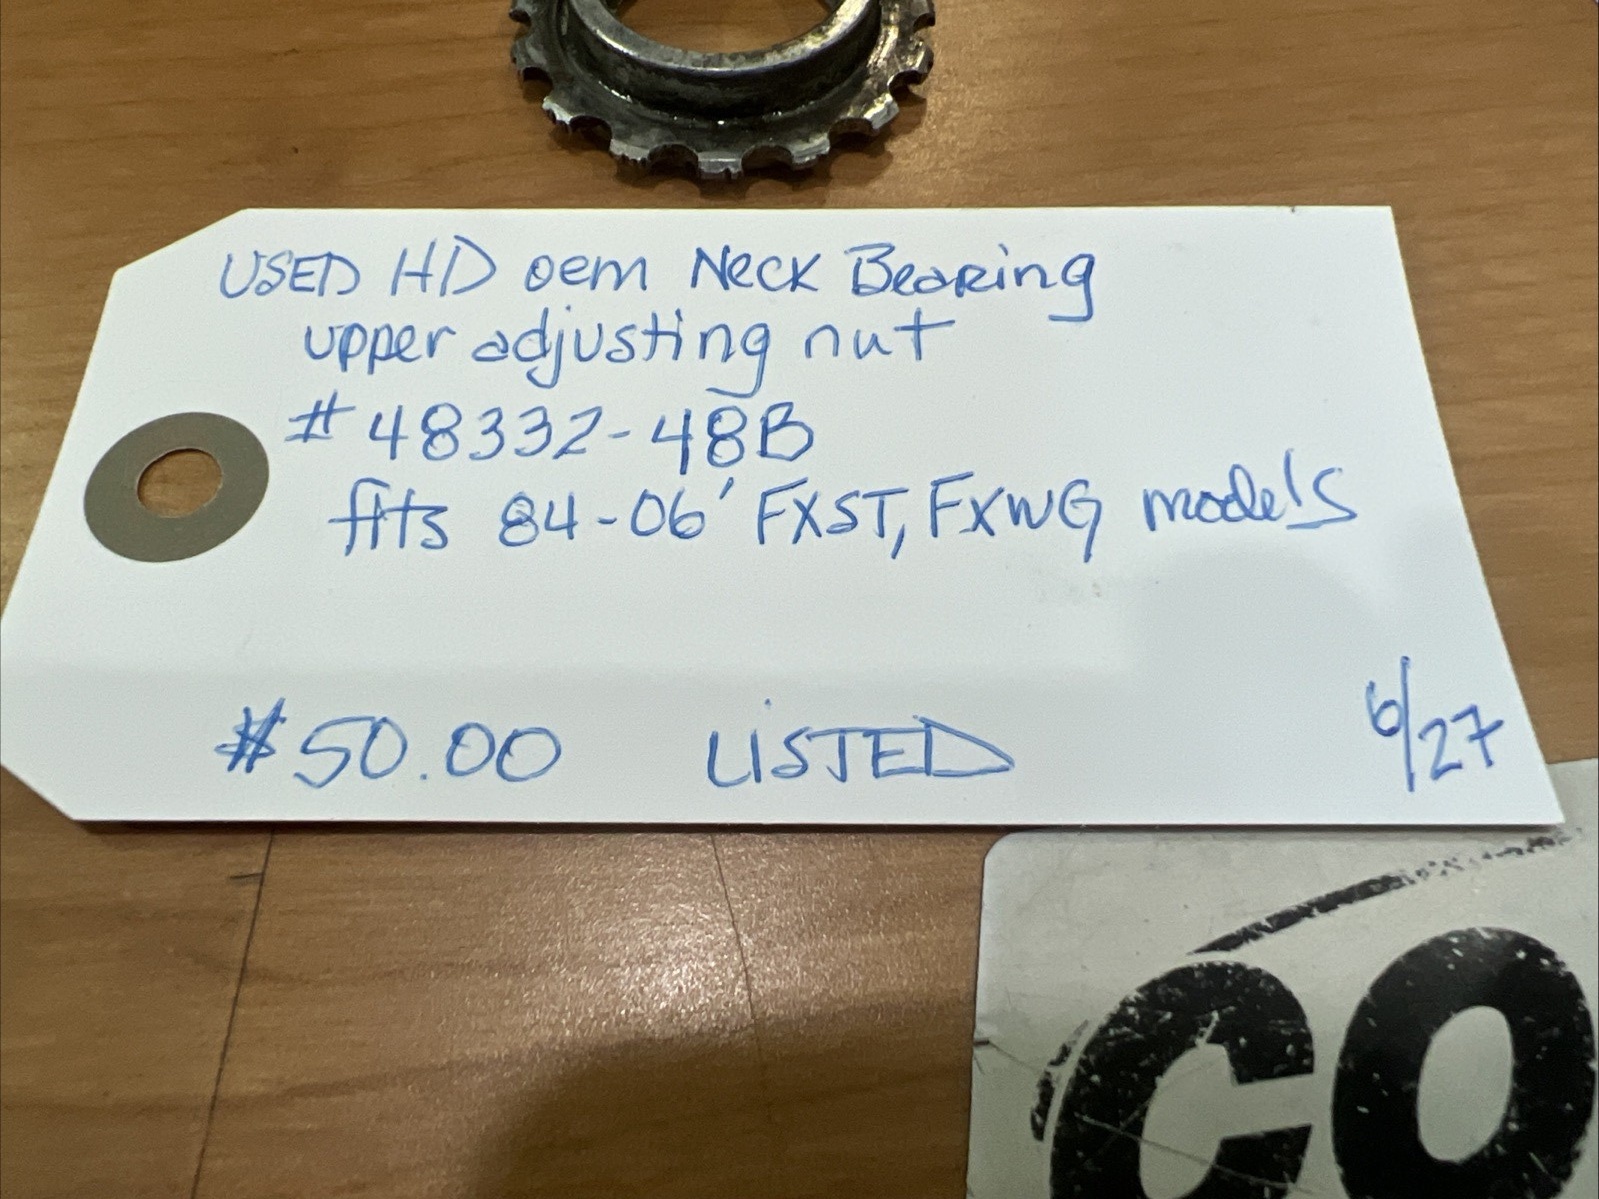 USED HD oem Neck Bearing
upper adjusting nut
# 48332-48B
fits 84-06' FXST, FXWG models
$50.00 LISTED 6/27
CO